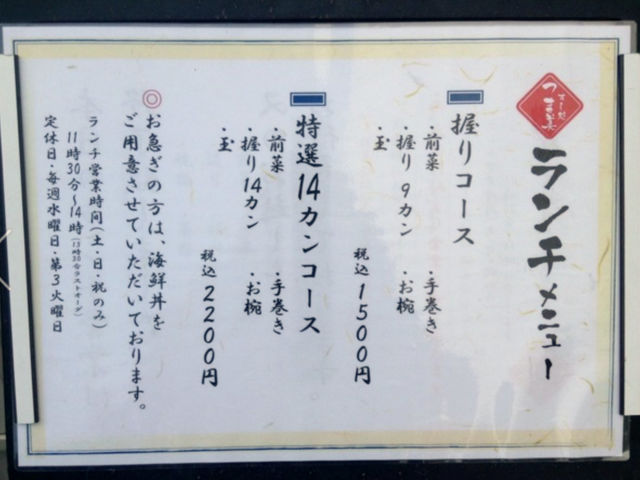 つま美
ランチメニュー
握りコース
・前菜 ・手巻き
・握り9カン ・お椀
・玉
税込1500円
特選14カンコース
・前菜 ・手巻き
・握り14カン ・お椀
・玉
税込2200円
◎お急ぎの方は、海鮮丼を
ご用意させていただいております。
ランチ営業時間(土・日・祝のみ)
11時30分〜14時(13時30分ラストオーダー)
定休日・毎週水曜日・第3火曜日